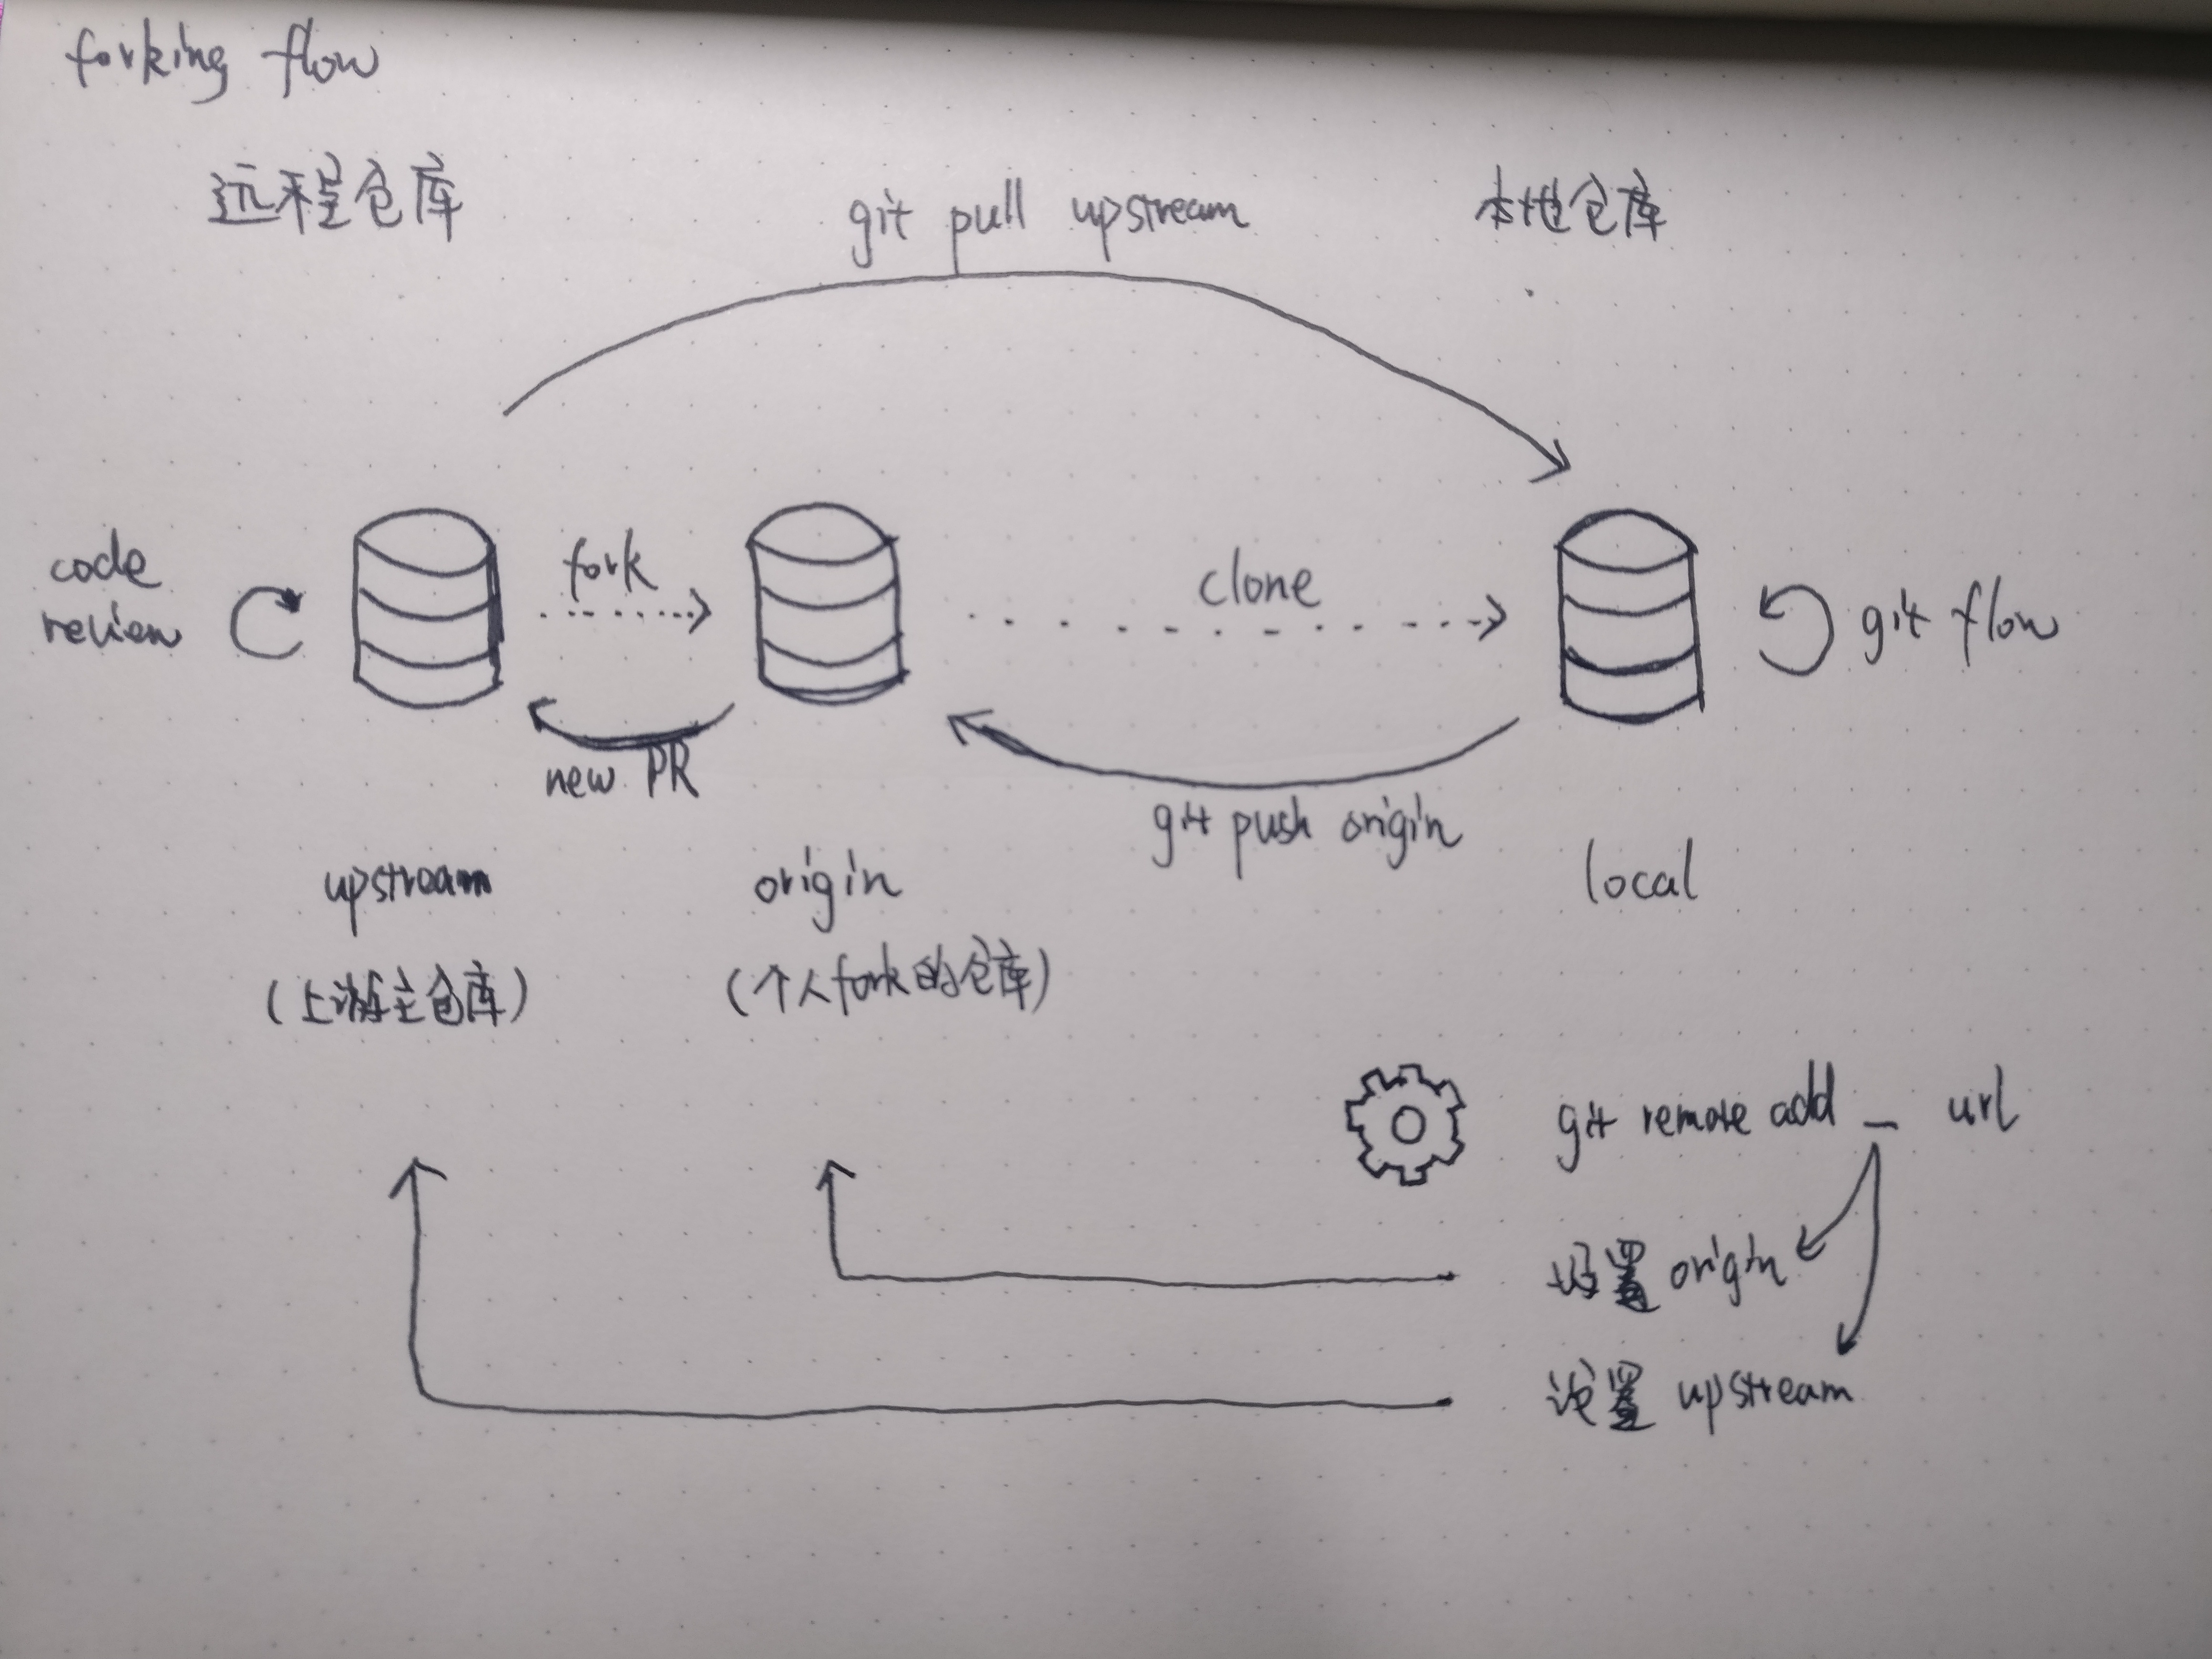 forking flow
远程仓库
git pull upstream
本地仓库
code
review
fork
clone
git flow
new PR
git push origin
upstream
origin
local
(上游主仓库)
(个人fork的仓库)
git remote add _ url
设置 origin
设置 upstream